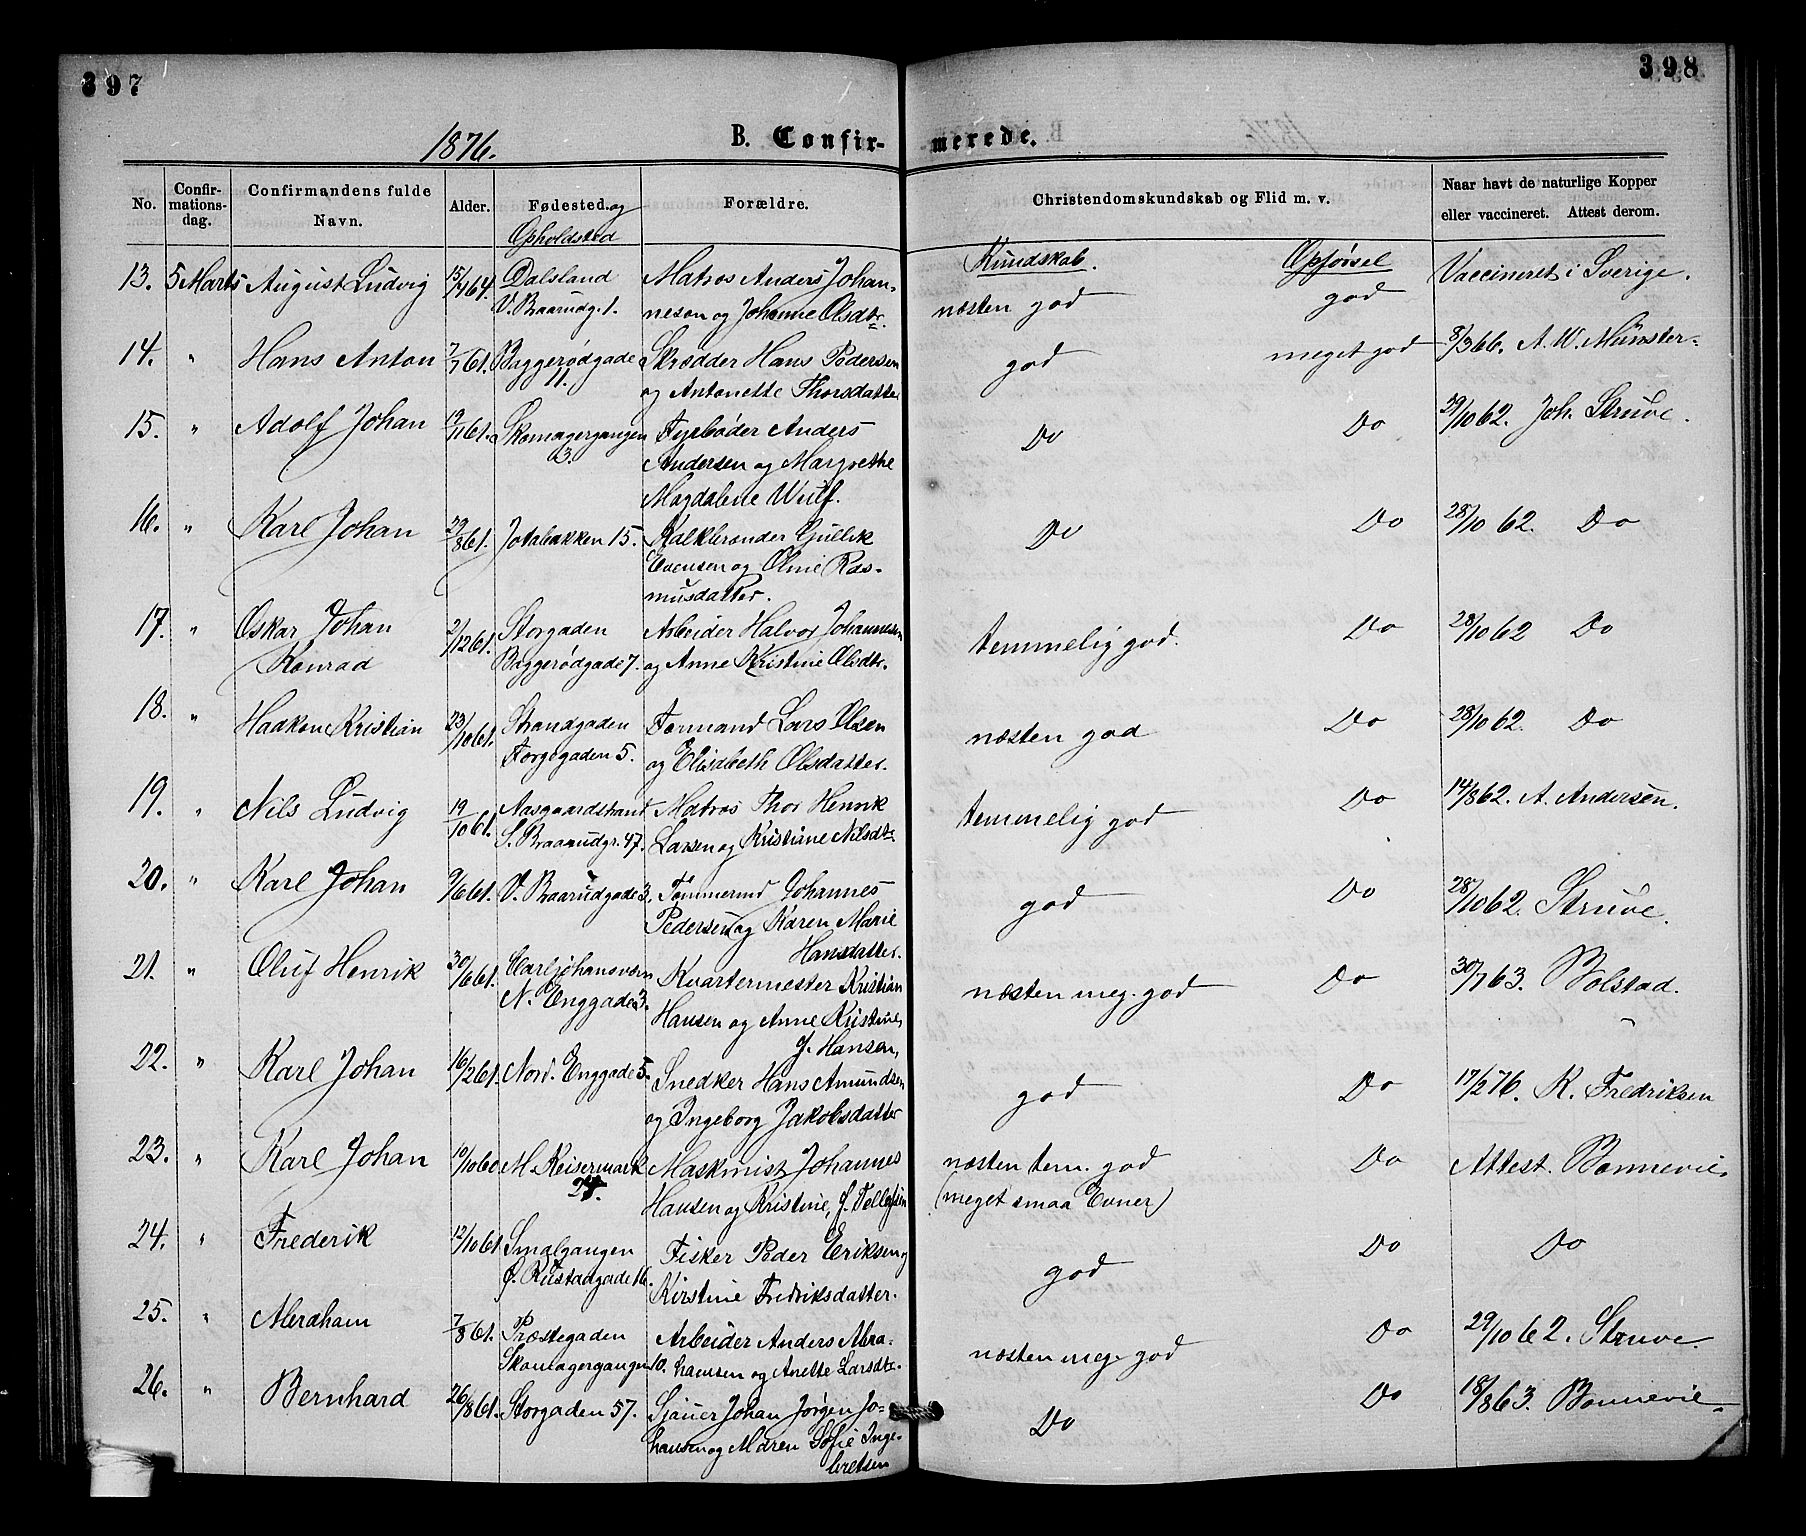 397
398
1876.
B. Confir-
merede.
No.
Confir-
mations-
dag.
Confirmandens fulde
Navn.
Alder.
Fødested. og
Opholdsted
Forældre.
Christendomskundskab og Flid m. v.
Naar havt de naturlige Kopper
eller vaccineret. Attest derom.
Kundskab. Opførsel
13. 5 Marts August Ludvig 15/4 64. Dalsland Matros Anders Johan- næsten god god Vaccineret i Sverige.
V. Baarudg. 1. neson og Johanne Olsdtr.
14. " Hans Anton 7/7 61. Baggerødgade Skrædder Hans Pedersen god meget god 8/3 66. A. W. Münster-
11. og Antonette Thorsdatter
15. " Adolf Johan 19/11 61. Skomagergangen Fyrbøder Anders Do Do 29/10 62. Joh. Struve.
3. Andersen og Margrethe
Magdalene Wulf.
16. " Karl Johan 29/8 61. Jotabakken 15. Kalkbrænder Gullik Do Do 28/10 62. Do
Evensen og Oline Ras-
musdatter.
17. " Oskar Johan 2/12 61. Storgaden Arbeider Halvor Johannesen temmelig god. Do 28/10 62 Do
Konrad Baggerødgade 7. og Anne Kristine Olsdtr.
18. " Haakon Kristian 23/10 61. Strandgaden Formand Lars Olsen næsten god Do 28/10 62. Do
Torgegaden 5. og Elisabeth Olsdatter.
19. " Nils Ludvig 19/10 61. Aasgaardstrand Matros Thor Henrik temmelig god Do 14/8 62. A. Andersen.
S. Baarudgr. 47. Larsen og Kristiane Nilsdtr
20. " Karl Johan 9/6 61. V. Baarudgade 3. Tømmermd Johannes god Do 28/10 62. Struve.
Pedersen og Karen Marie
Hansdatter.
21. " Oluf Henrik 30/6 61. Carljohansværn Kvartermester Kristian næsten meg. god Do 30/7 63. Bolstad.
N. Enggade 3. Hansen og Anne Kristine,
f. Hansen,
22. " Karl Johan 16/2 61. Nord. Enggade 5. Snedker Hans Amundsen god Do 17/2 76. K. Fredriksen
og Ingeborg Jakobsdatter
23. " Karl Johan 10/10 60 M. Keisermark Maskinist Johannes næsten tem. god Do Attest. Bonnevie.
24. Hansen og Kristine, f. Tollefsen (meget smaa Evner)
24. " Frederik 12/10 61 Smalgangen Fisker Peder Eriksen og god Do Do
Ø. Rustadgade 16. Kirstine Fredriksdatter.
25. " Abraham 7/8 61. Præstegaden Arbeider Anders Abra- næsten meg. god Do 29/10 62. Struve.
Skomagergangen 10. hamsen og Anette Larsdtr.
26. " Bernhard 26/8 61. Storgaden 57. Sjauer Johan Jørgen Jo- Do Do 18/8 63. Bonnevie
hansen og Maren Sofie Inge-
bretsen